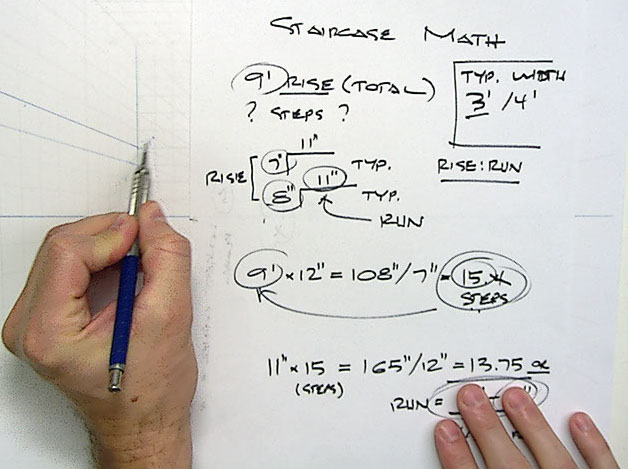 STAIRCASE MATH
9' RISE (TOTAL)
? STEPS ?
TYP. WIDTH
3' / 4'
RISE : RUN
11"
7" TYP.
RISE
11"
8" TYP.
RUN
9' × 12" = 108" / 7" = 15.4
STEPS
11" × 15 = 165" / 12" = 13.75 OR
(STEPS)
RUN =